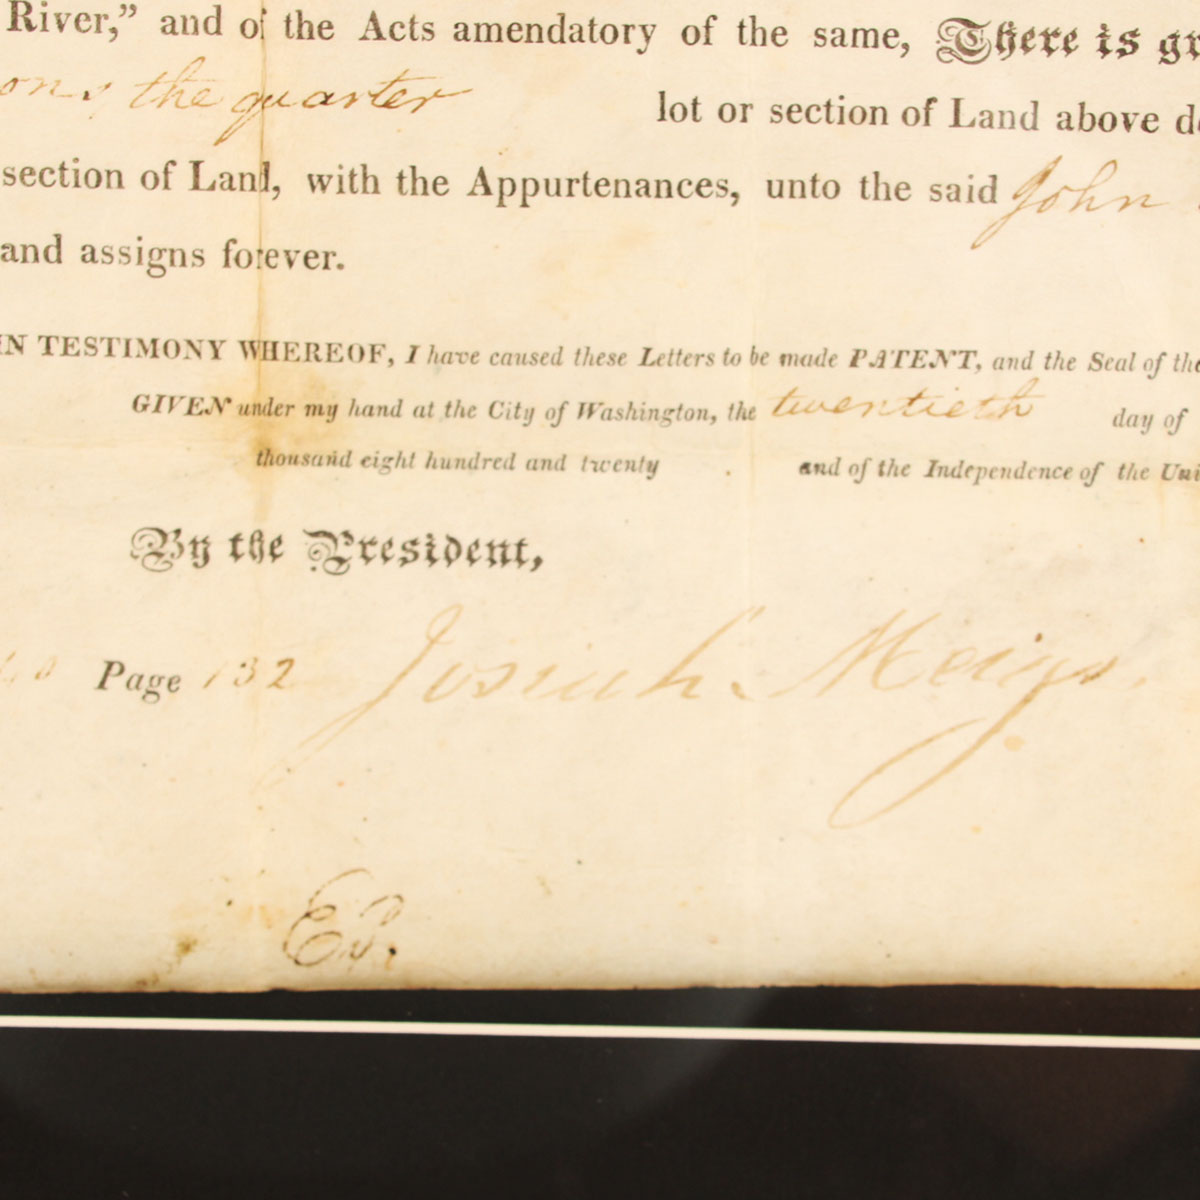 River,” and of the Acts amendatory of the same, There is
the quarter lot or section of Land above
section of Land, with the Appurtenances, unto the said John
and assigns forever.
IN TESTIMONY WHEREOF, I have caused these Letters to be made PATENT, and the Seal of the
GIVEN under my hand at the City of Washington, the twentieth day of
thousand eight hundred and twenty and of the Independence of the
By the President,
Page 132 Josiah Meigs